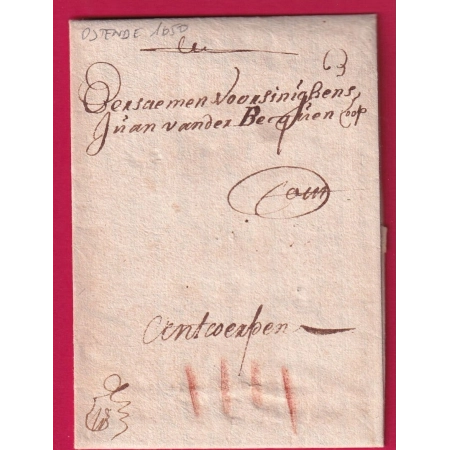 OSTENDE 1650
63
Eersaemen Voorsinighens
Juan vander Becquen Coop
Antwerpen